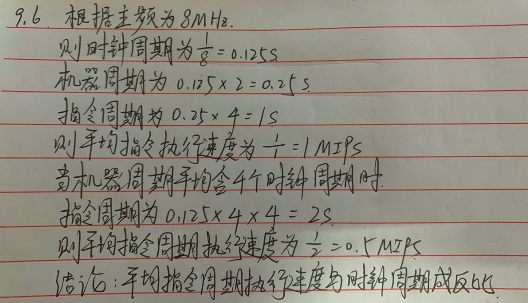 9.6. 根据主频为8MHz.
则时钟周期为1/8=0.125S
机器周期为0.125×2=0.25S
指令周期为0.25×4=1S
则平均指令执行速度为1/1=1MIPS
当机器周期平均含4个时钟周期时.
指令周期为0.125×4×4=2S
则平均指令周期执行速度为1/2=0.5MIPS
结论:平均指令周期执行速度与时钟周期成反比